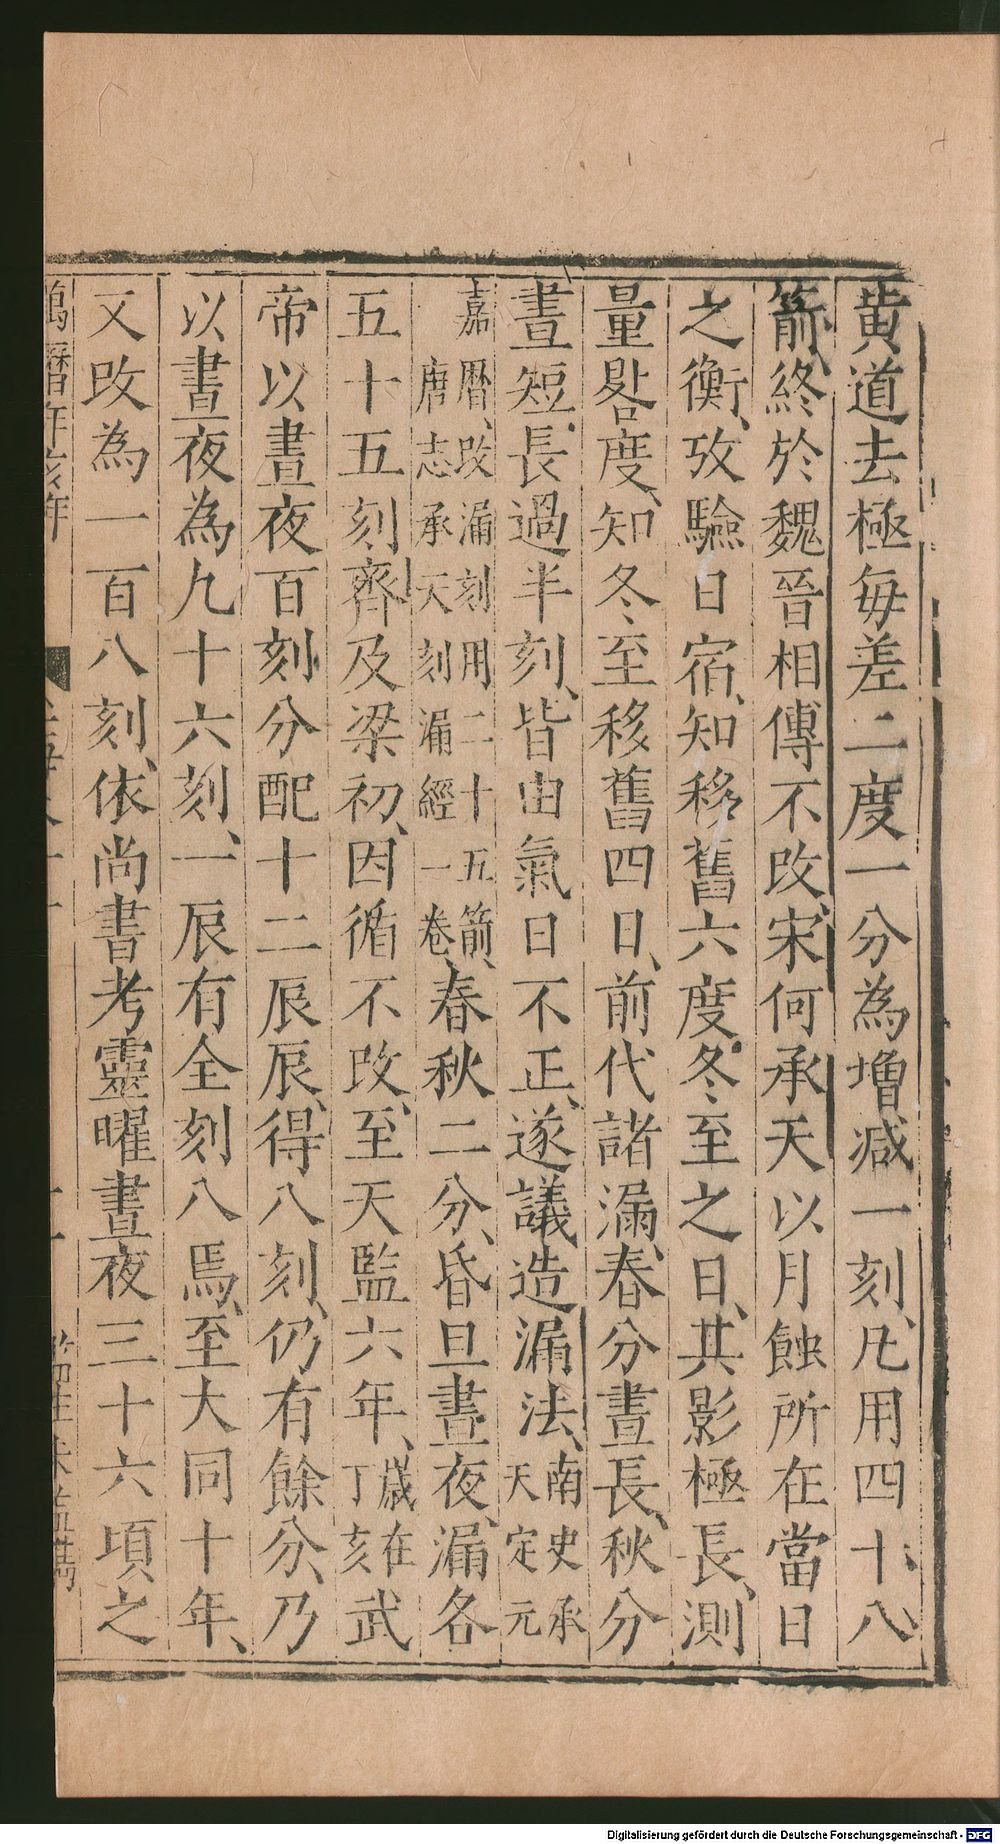 黄道去極每差二度一分為增減一刻、凡用四十八
箭、終於魏晉相傳不改、宋何承天以月蝕所在當日
之衡、攷驗日宿、知移舊六度、冬至之日、其影極長、測
量晷度、知冬至移舊四日、前代諸漏、春分晝長、秋分
晝短、長過半刻、皆由氣日不正、遂議造漏法、南史承天定元
嘉曆、改漏刻用二十五箭、唐志承天刻漏經一卷、春秋二分、昏旦晝夜、漏各
五十五刻、齊及梁初、因循不改、至天監六年、歲在丁亥武
帝以晝夜百刻分配十二辰、辰得八刻、仍有餘分、乃
以晝夜為九十六刻、一辰有全刻八焉、至大同十年、
又改為一百八刻、依尚書考靈曜晝夜三十六頃之
Digitalisierung gefördert durch die Deutsche Forschungsgemeinschaft - DFG